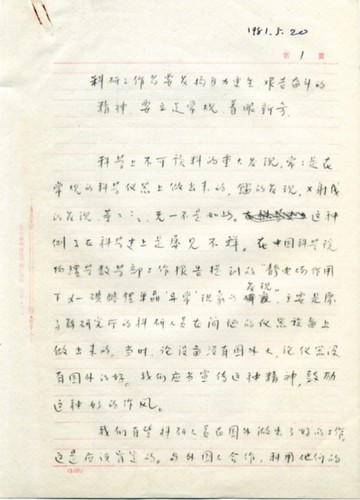 1981.5.20
第 1 页
科研工作者要发扬自力更生 艰苦奋斗的
精神 要立足常规，着眼新奇
科学上不可预料的重大发现，常常是在
常规的科学仪器上做出来的，镭的发现，X射线
的发现，等等，无一不是如此。这种
例子在科学史上是屡见不鲜。在中国科学院
物理学数学部工作报告提到的"静电场作用
下 碘酸锂单晶"异常"现象的发现。主要是原
子能研究所的科研人员在简 的仪器设备上
做出来的。当时，论设备没有国外大，论仪器没
有国外的好。我们应当宣传这种精神，鼓励
这种好的作风。
我们有些科研人员在国外做出了好的工作，
这是应该肯定的。与外国人合作，利用他们的